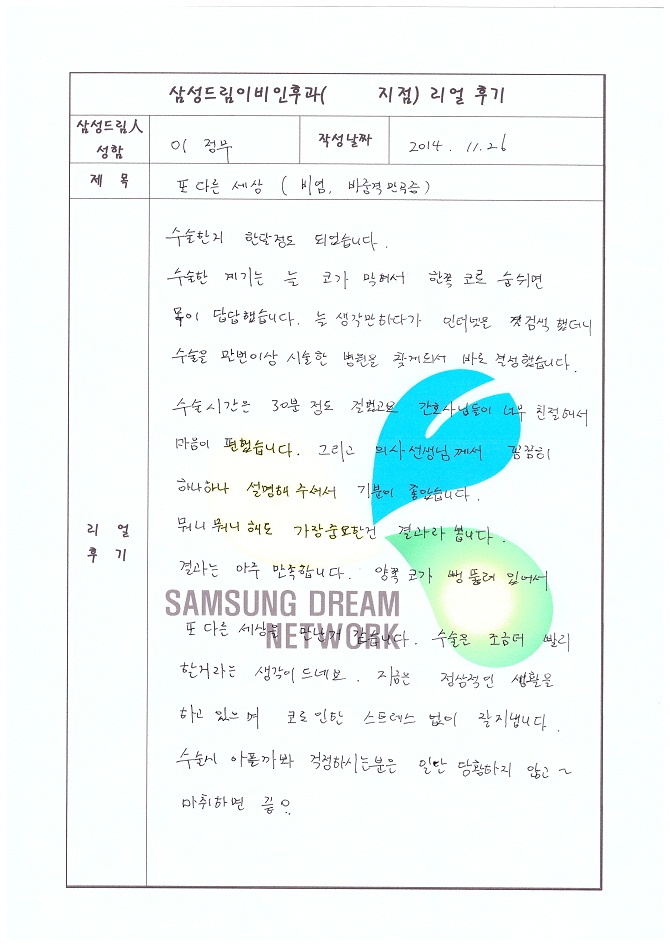 삼성드림이비인후과( 지점) 리얼 후기
삼성드림人 성함
이 정무
작성날짜
2014. 11.26
제 목
또 다른 세상 ( 비염, 비중격만곡증)
리 얼
후 기
수술한지 한달정도 되었습니다.
수술한 계기는 늘 코가 막혀서 한쪽 코로 숨쉬면
목이 답답했습니다. 늘 생각만하다가 인터넷은 검색했더니
수술을 만번이상 시술한 병원을 찾게되서 바로 결정했습니다.
수술시간은 30분 정도 걸렸고요 간호사님들이 너무 친절해서
마음이 편했습니다. 그리고 의사선생님께서 꼼꼼히
하나하나 설명해 주셔서 기분이 좋았습니다.
뭐니 뭐니 해도 가장중요한건 결과라 봅니다.
결과는 아주 만족합니다. 양쪽 코가 뻥 뚫려 있어서
SAMSUNG DREAM
NETWORK
또 다른 세상을 만난거 같습니다. 수술은 조금더 빨리
할거라는 생각이 드네요. 지금은 정상적인 생활을
하고 있으며 코로인한 스트레스 없이 잘지냅니다.
수술시 아플까봐 걱정하시는분은 일단 당황하지 않고~
마취하면 끝?